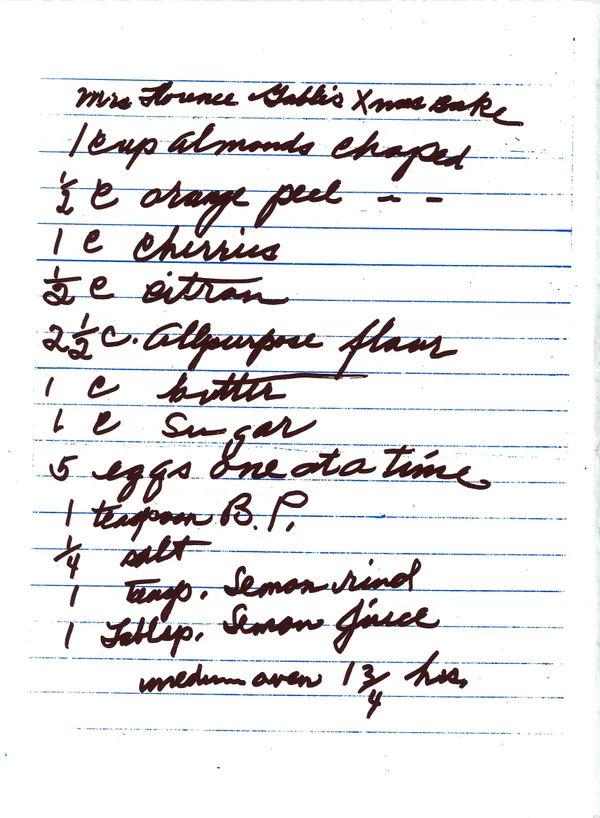 Mrs Florence Gable's Xmas Bake
1 cup almonds chaped
1/2 C orange peel - -
1 C cherries
1/2 C citran
2 1/2 C. Allpurpose flour
1 C butter
1 C sugar
5 eggs one at a time
1 teaspoon B.P.
1/4 salt
1 teasp. Lemon rind
1 Tablsp. Lemon juice
medium oven 1 3/4 hrs.